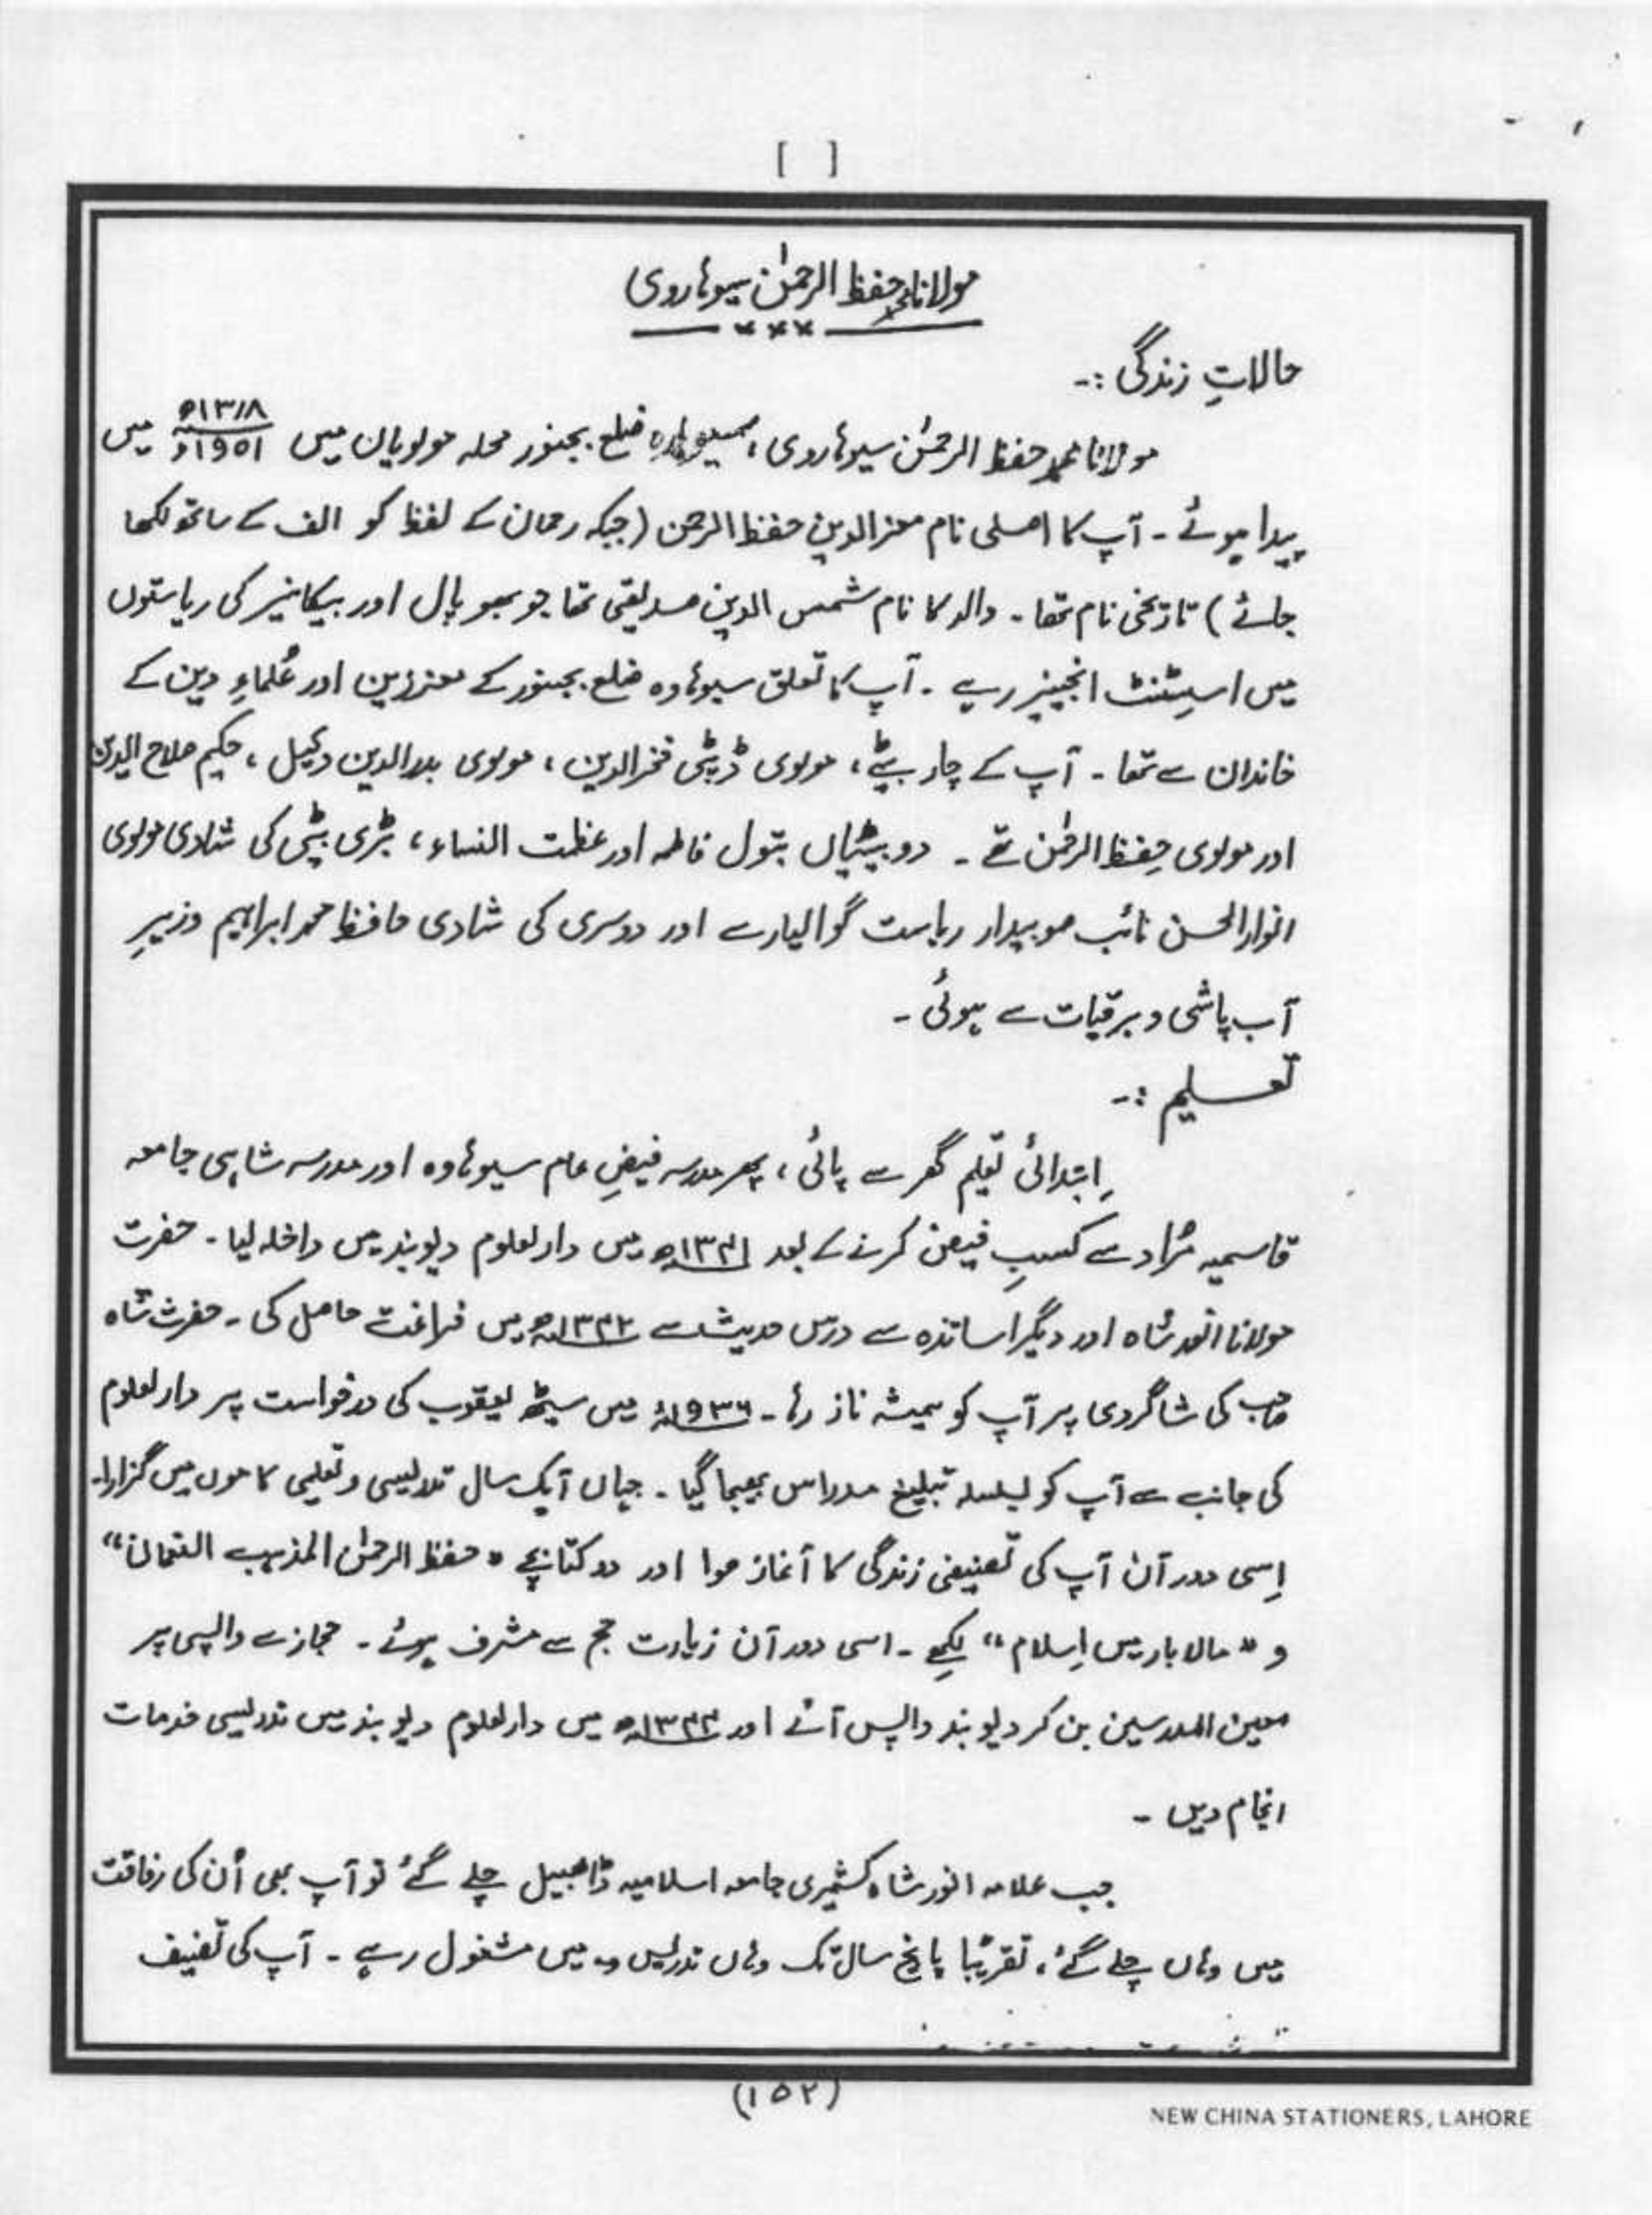 [ ]
مولانا محمد حفظ الرحمٰن سیوہاروی
حالاتِ زندگی :-
مولانا محمد حفظ الرحمٰن سیوہاروی، سیوہارہ ضلع بجنور محلہ مولویان میں ۱۳۱۸ھ / ۱۹۵۱ء میں
پیدا ہوئے ۔ آپ کا اصلی نام معزالدین حفظ الرحمن (جبکہ رحمان کے لفظ کو الف کے ساتھ لکھا
جائے) تاریخی نام تھا ۔ والد کا نام شمس الدین صدیقی تھا جو بھوپال اور بیکانیر کی ریاستوں
میں اسسٹنٹ انجینیر رہے ۔ آپ کا تعلق سیوہاوہ ضلع بجنور کے معززین اور عُلماءِ دین کے
خاندان سے تھا ۔ آپ کے چار بیٹے، مولوی ڈپٹی فخرالدین، مولوی بدرالدین وکیل، حکیم صلاح الدین
اور مولوی حِفظ الرحمٰن تھے ۔ دو بیٹیاں بتول فاطمہ اور عظمت النساء، بڑی بیٹی کی شادی مولوی
انوارالحسن نائب صوبیدار ریاست گوالیار سے اور دوسری کی شادی حافظ محمد ابراہیم وزیرِ
آب پاشی و برقیات سے ہوئی ۔
تعسلیم :-
اِبتدائی تعلیم گھر سے پائی، پھر مدرسہ فیضِ عام سیوہاوہ اور مدرسہ شاہی جامعہ
قاسمیہ مُراد سے کسبِ فیض کرنے کے بعد ۱۳۴۱ھ میں دارلعلوم دیوبند میں داخلہ لیا ۔ حضرت
مولانا انور شاہ اور دیگر اساتذہ سے درس حدیث سے ۱۳۴۲ھ میں فراغت حاصل کی ۔ حضرت شاہ
صاحب کی شاگردی پر آپ کو ہمیشہ ناز رہا ۔ ۱۹۳۶ء میں سیٹھ یعقوب کی درخواست پر دارلعلوم
کی جانب سے آپ کو بسلسلہ تبلیغ مدراس بھیجا گیا ۔ جہاں آیک سال تدریسی و تعلیمی کاموں میں گزارا۔
اِسی دورآن آپ کی تصنیفی زندگی کا آغاز ہوا اور دو کتابچے "حفظ الرحمٰن المذہب النعمان"
و "مالابار میں اِسلام" لکھے ۔ اسی دورآن زیارت حج سے مشرف ہوئے ۔ حجاز سے واپسی پر
معین المدرسین بن کر دیوبند واپس آئے اور ۱۳۴۴ھ میں دارلعلوم دیوبند میں تدریسی خدمات
انجام دیں ۔
جب علامہ انور شاہ کشمیری جامعہ اسلامیہ ڈابھیل چلے گئے تو آپ بھی اُن کی رفاقت
میں وہاں چلے گئے، تقریباً پانچ سال تک وہاں تدریس میں مشغول رہے ۔ آپ کی تصنیف
(۱۵۲)
NEW CHINA STATIONERS, LAHORE